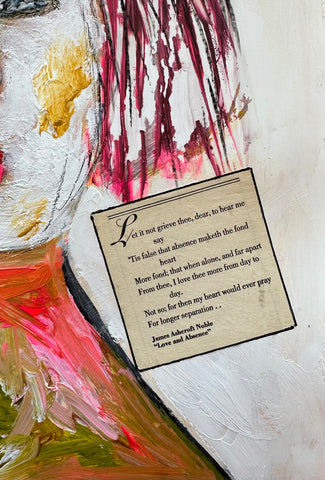 Let it not grieve thee, dear, to hear me
say
'Tis false that absence maketh the fond
heart
More fond; that when alone, and far apart
From thee, I love thee more from day to
day.
Not so; for then my heart would ever pray
For longer separation . .
James Ashcroft Noble
"Love and Absence"